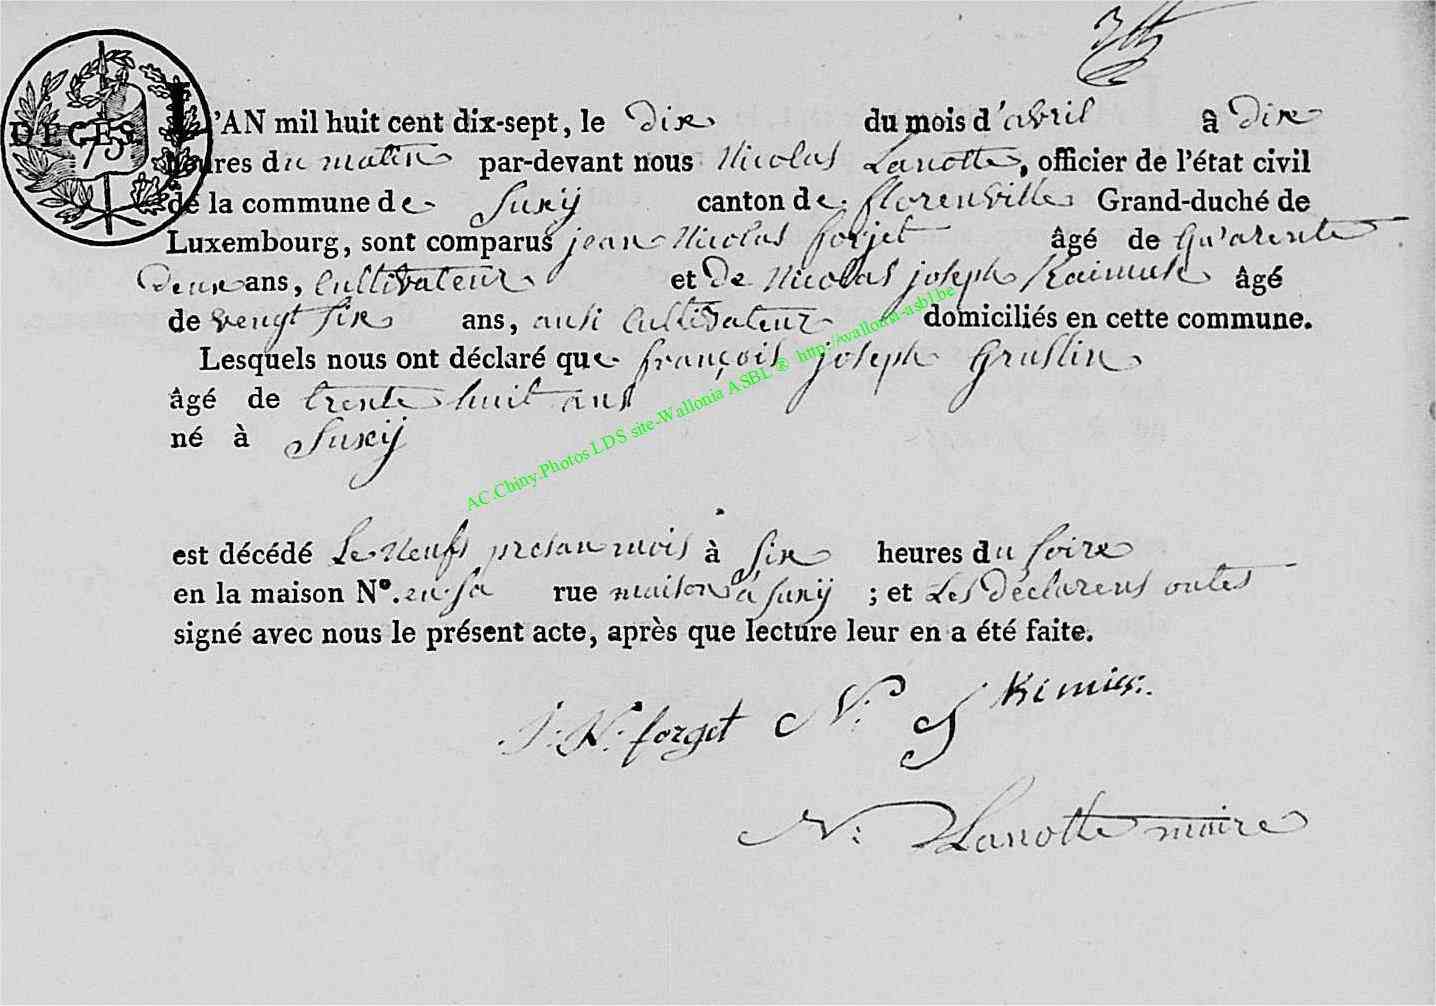 DECES
75
L'AN mil huit cent dix-sept, le dix du mois d'avril a dix
heures du matin par-devant nous Nicolas Lanotte, officier de l'état civil
de la commune de Suxÿ canton de florenville Grand-duché de
Luxembourg, sont comparus jean Nicolas forjet âgé de quarente
deux ans, Cultivateur et de Nicolas joseph âgé
de vengt six ans, ausi Cultivateur domiciliés en cette commune.
Lesquels nous ont déclaré que françois joseph Gruslin
âgé de trente huit ans
né à Suxÿ
est décédé Le Neufs presan mois à six heures du soire
en la maison N°. en sa rue maison a suxÿ ; et Les Déclarens ontes
signé avec nous le présent acte, après que lecture leur en a été faite.
J: N: forget N: J
N: Lanotte maire
AC.Chiny.Photos LDS site-Wallonia ASBL ® http://wallonia-asbl.be